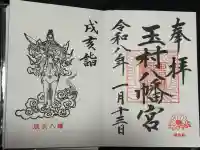 奉拝
玉村八幡宮
令和八年一月十三日
戌亥詣